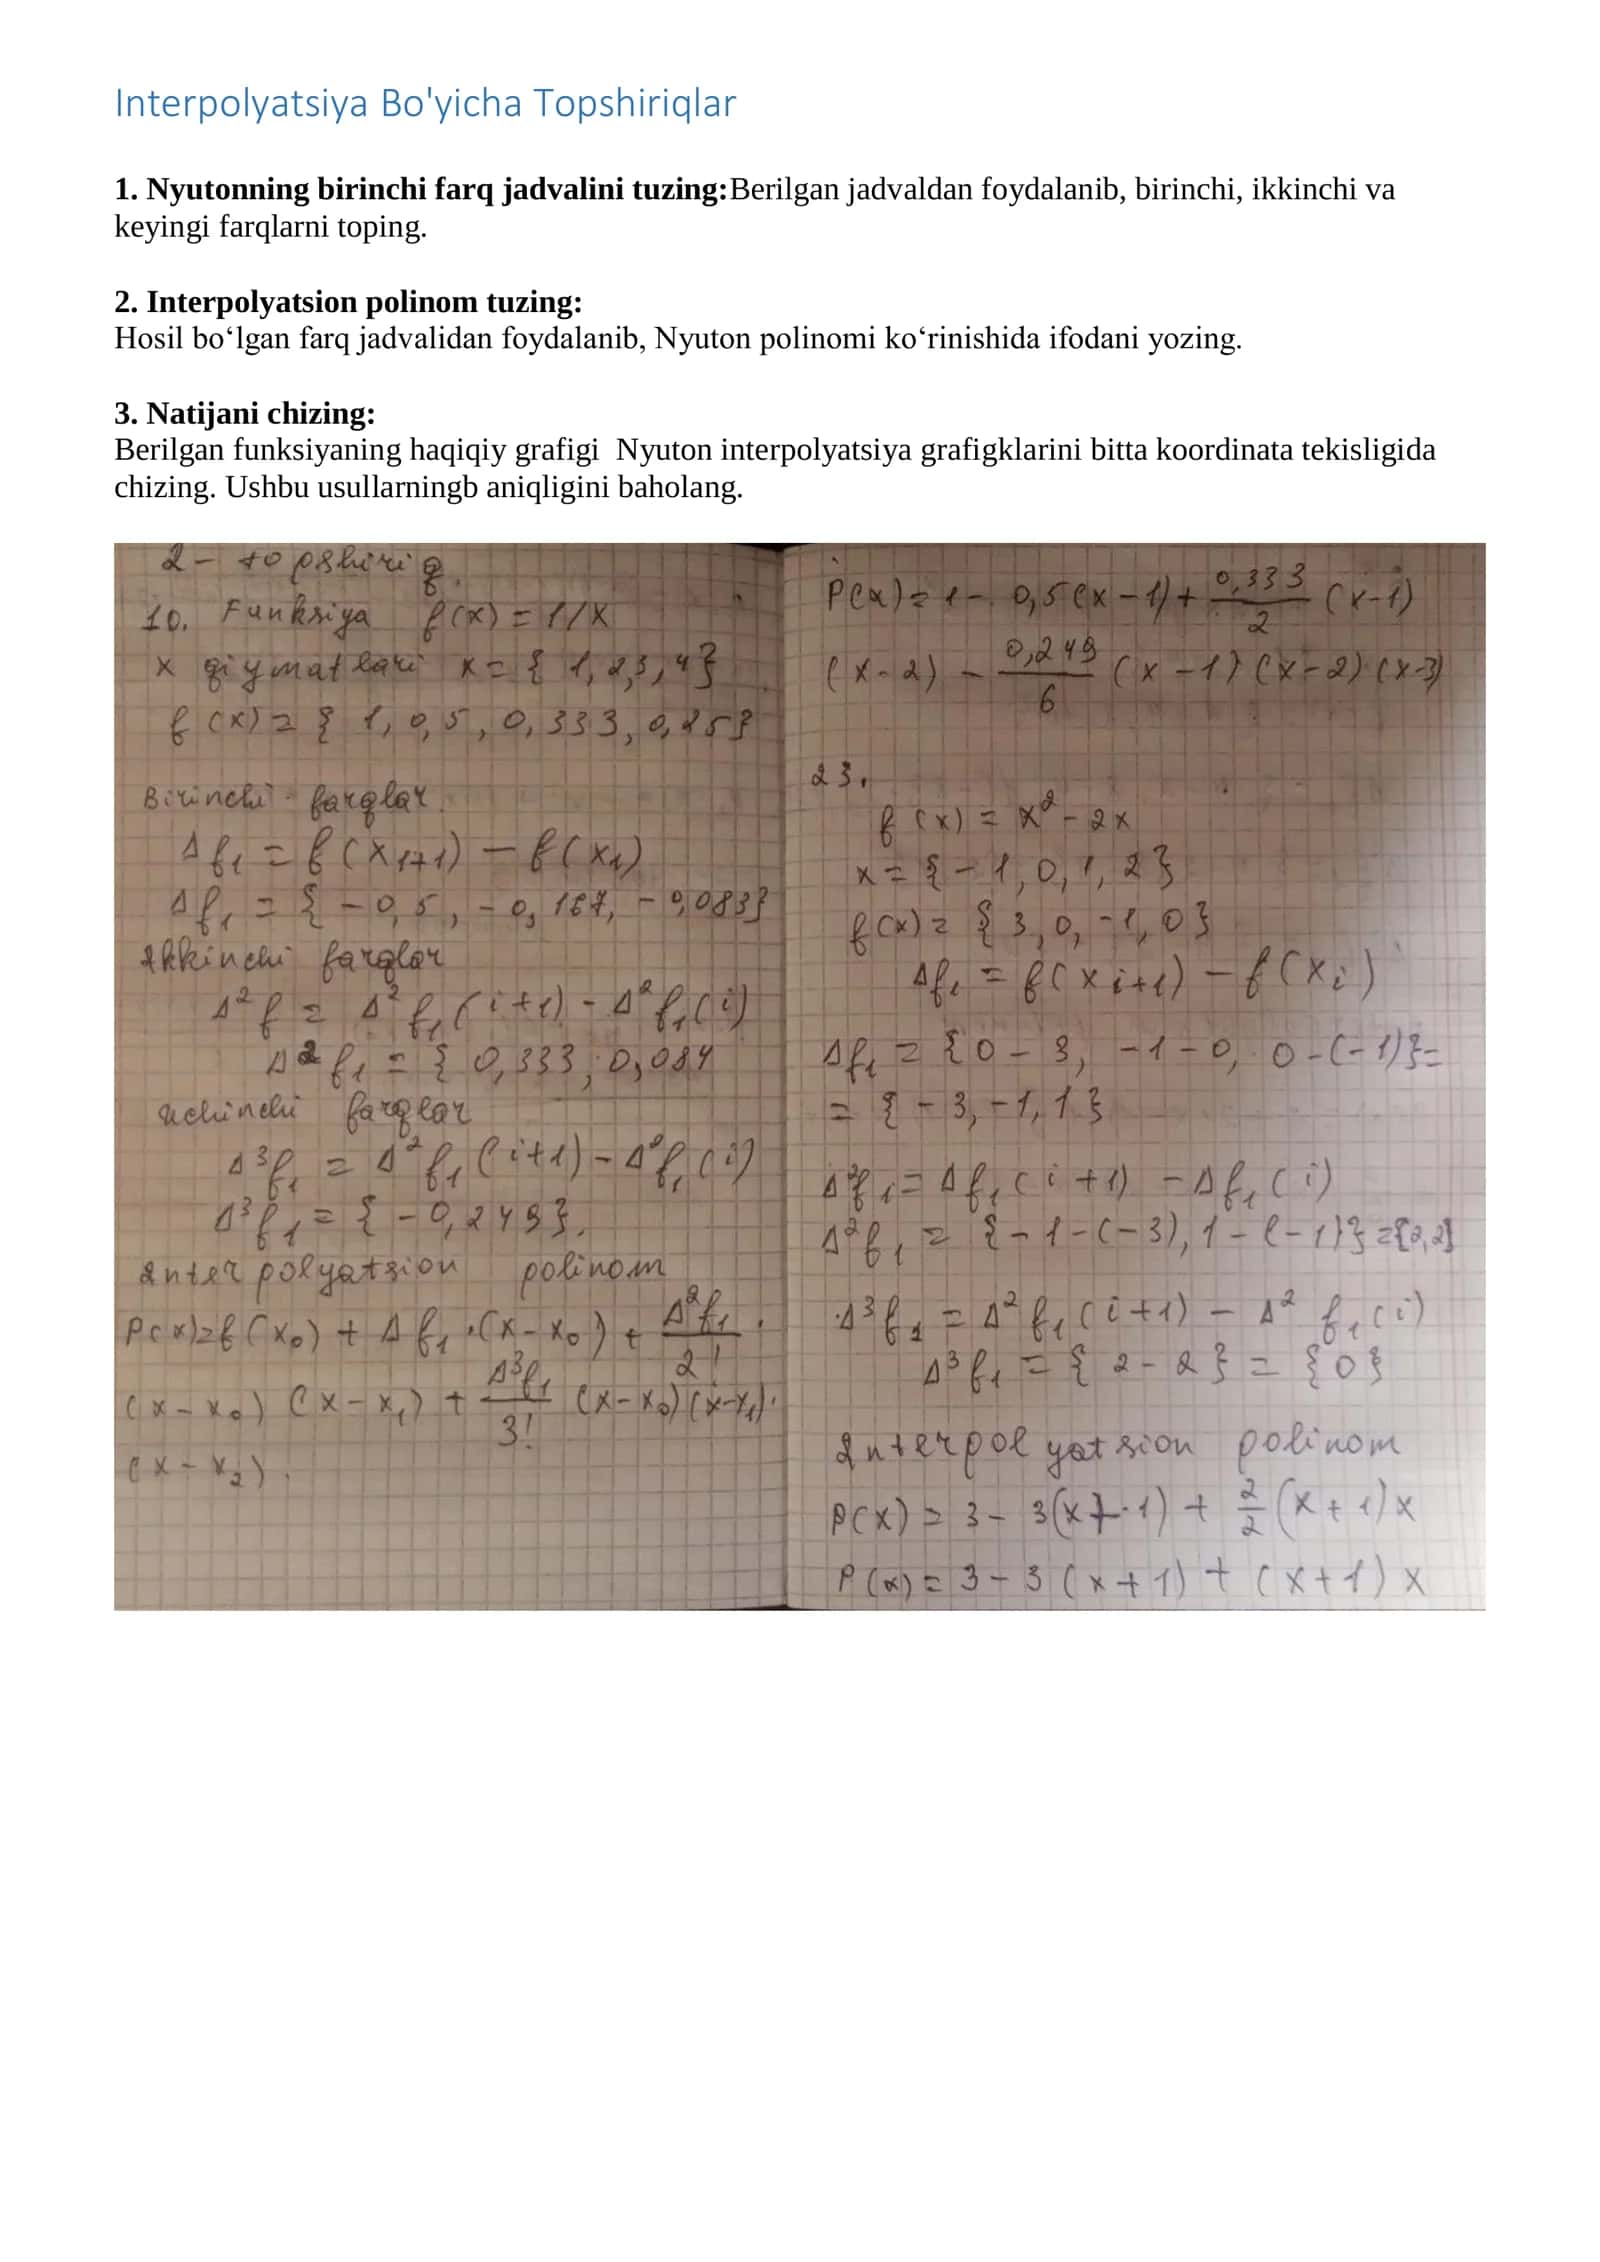 Interpolyatsiya Bo'yicha Topshiriqlar
1. Nyutonning birinchi farq jadvalini tuzing:Berilgan jadvaldan foydalanib, birinchi, ikkinchi va
keyingi farqlarni toping.
2. Interpolyatsion polinom tuzing:
Hosil bo‘lgan farq jadvalidan foydalanib, Nyuton polinomi ko‘rinishida ifodani yozing.
3. Natijani chizing:
Berilgan funksiyaning haqiqiy grafigi  Nyuton interpolyatsiya grafigklarini bitta koordinata tekisligida
chizing. Ushbu usullarningb aniqligini baholang.
2 - topshiriq.
10. Funksiya f(x) = 1/x
x qiymatlari x = { 1, 2, 3, 4}
f(x) = { 1, 0,5, 0,333, 0,25}
Birinchi farqlar.
Δf₁ = f(x₁₊₁) - f(x₁)
Δf₁ = { -0,5, -0,167, -0,083}
Ikkinchi farqlar
Δ²f = Δ²f₁(i+1) - Δ²f₁(i)
Δ²f₁ = { 0,333, 0,084
Uchinchi farqlar
Δ³f₁ = Δ²f₁(i+1) - Δ²f₁(i)
Δ³f₁ = { -0,249}.
Interpolyatsion polinom
P(x) = f(x₀) + Δf₁·(x-x₀) + Δ²f₁/2! ·
(x-x₀)(x-x₁) + Δ³f₁/3! (x-x₀)(x-x₁)·
(x-x₂).
P(x) = 1 - 0,5(x-1) + 0,333/2 (x-1)
(x-2) - 0,249/6 (x-1)(x-2)(x-3)
23.
f(x) = x² - 2x
x = { -1, 0, 1, 2}
f(x) = { 3, 0, -1, 0}
Δf₁ = f(x i+1) - f(x i)
Δf₁ = {0 - 3, -1 - 0, 0 - (-1)} =
= { -3, -1, 1 }
Δ²f₁ = Δf₁(i+1) - Δf₁(i)
Δ²f₁ = { -1 - (-3), 1 - (-1)} = {2, 2}
Δ³f₁ = Δ²f₁(i+1) - Δ²f₁(i)
Δ³f₁ = { 2 - 2 } = { 0 }
Interpolyatsion polinom
P(x) = 3 - 3(x+1) + 2/2 (x+1)x
P(x) = 3 - 3(x+1) + (x+1)x